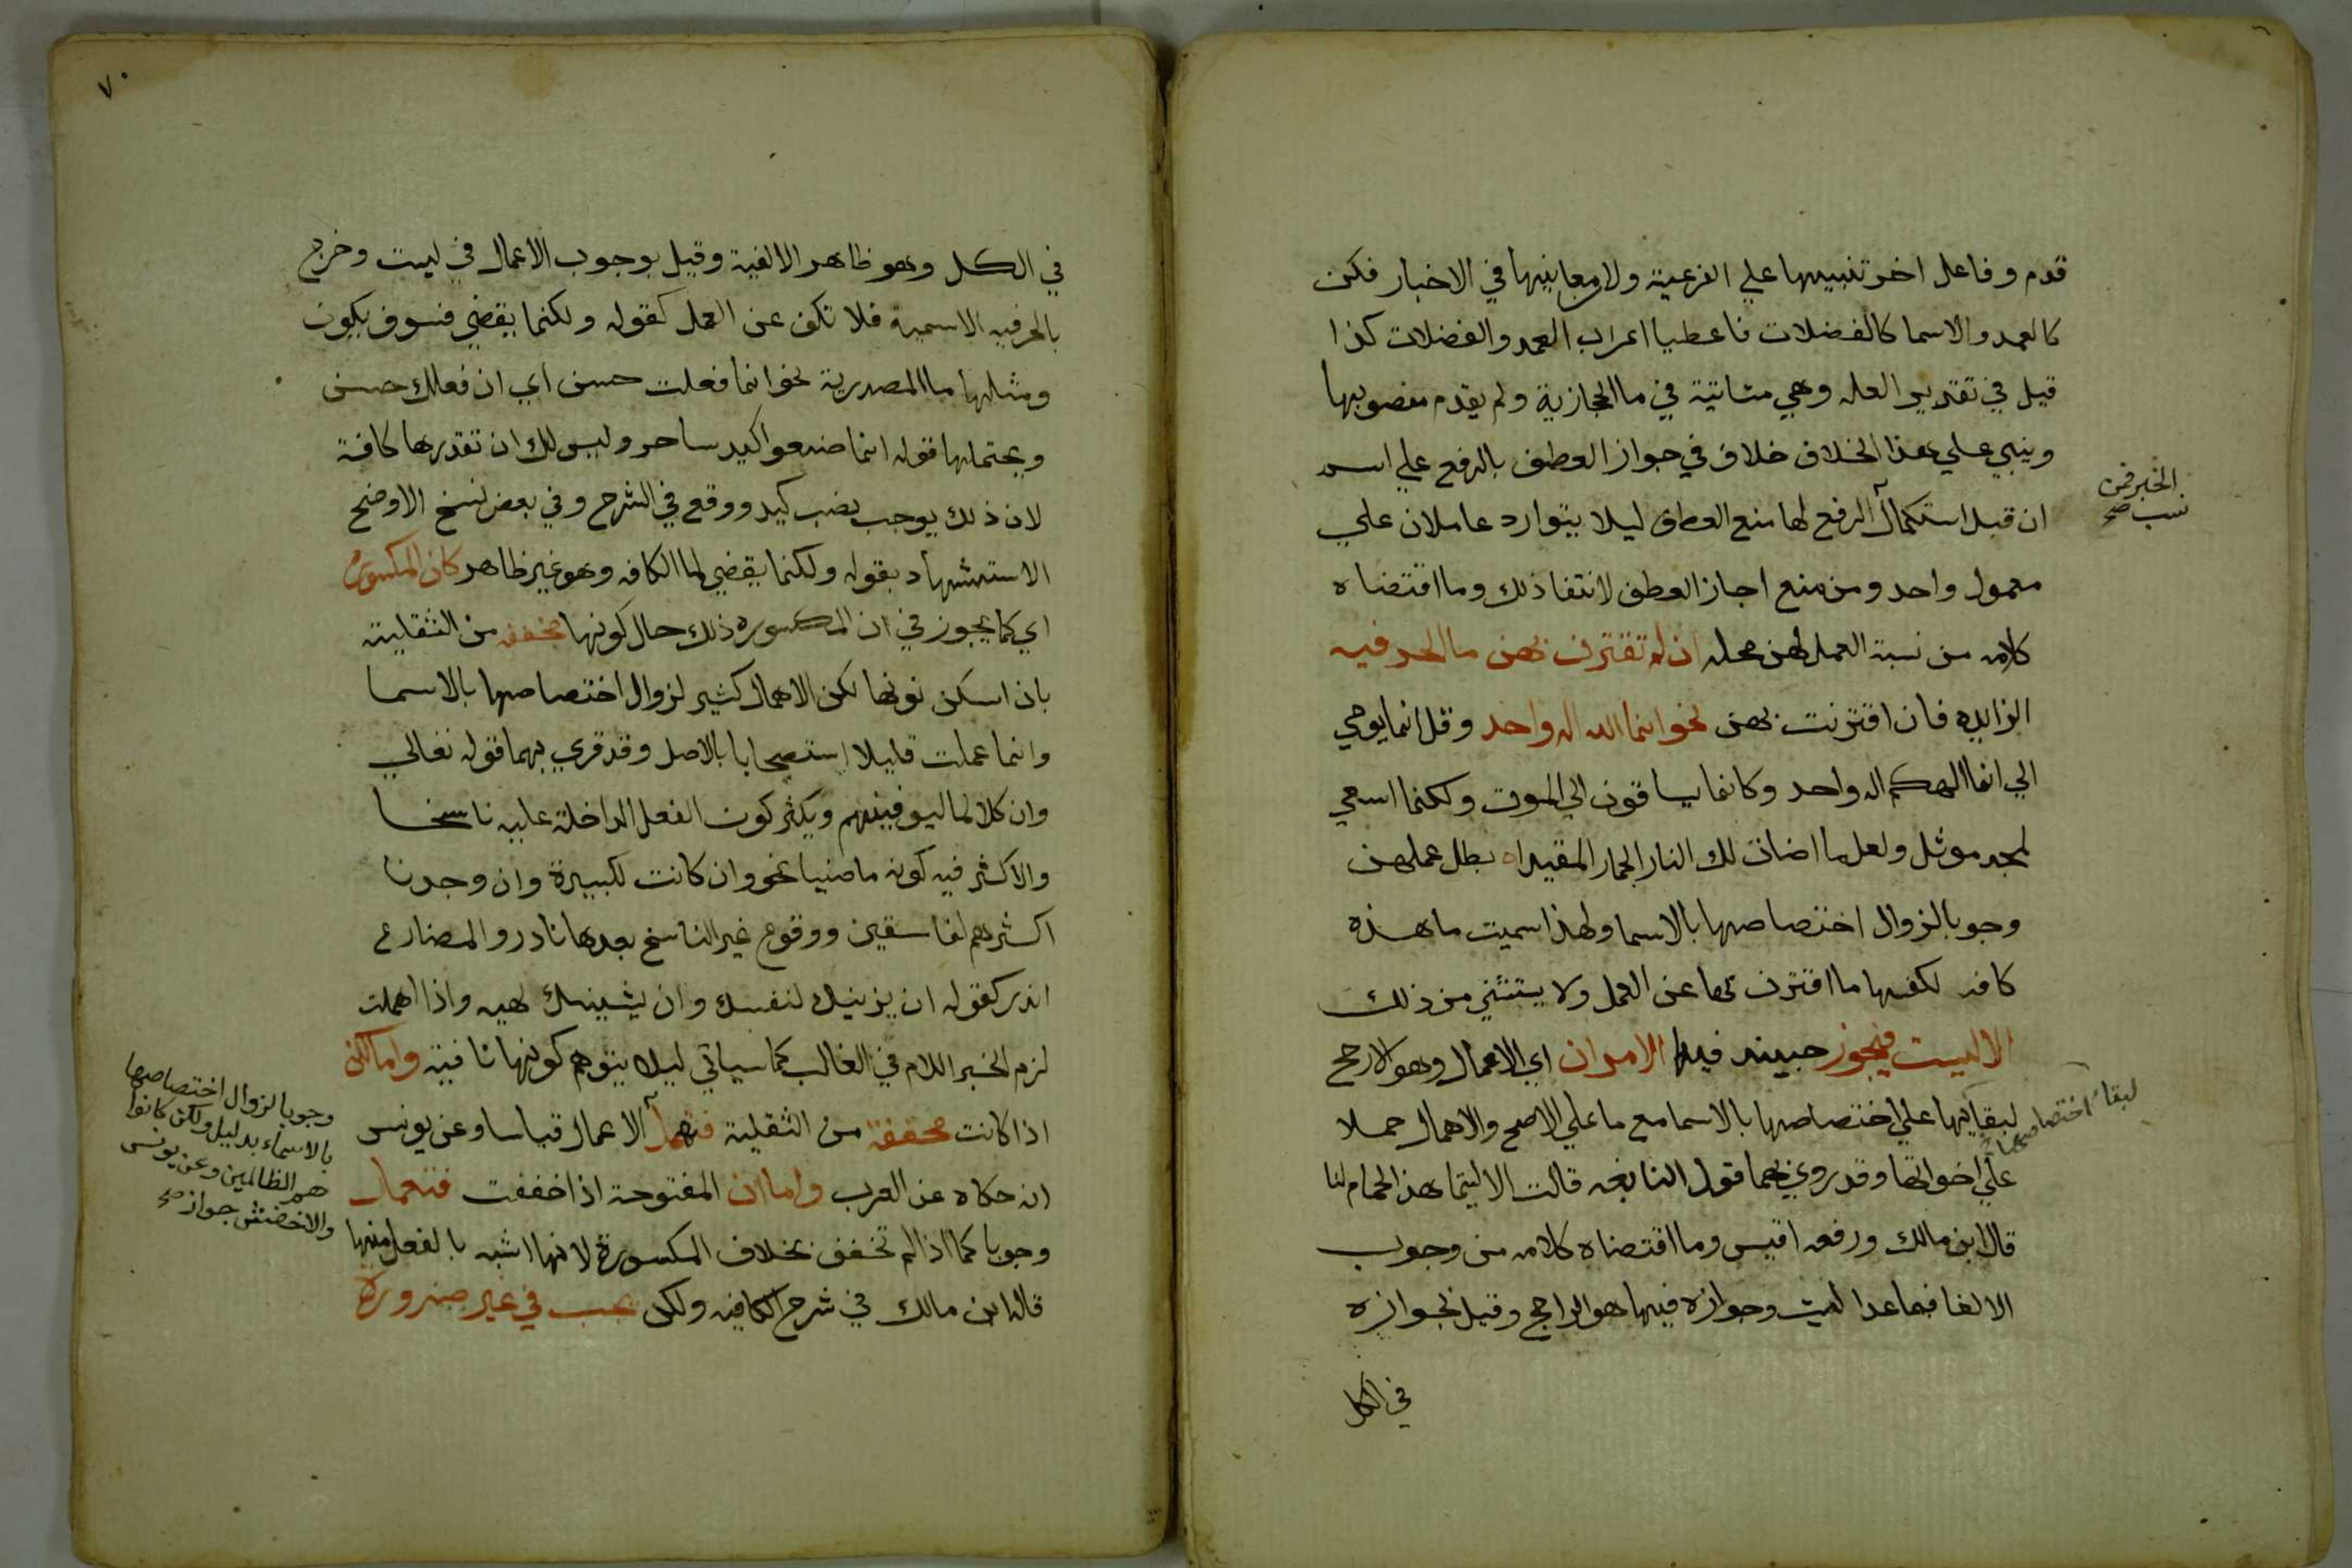 قدم وفاعل اخر تنبيها علي الفرعية ولان معانيها في الاخبار فكن
كالعمد والاسما كالفضلات فاعطيا اعراب العمد والفضلات كذا
قيل في تقدير العله وهي متاتية في ما الحجازية ولم يقدم منصوبها
وينبي علي هذا الخلاف خلاف في جواز العطف بالرفع علي اسم
ان قبل استكمال الخبر فمن نسب
الرفع لها منع العطف ليلا يتوارد عاملان علي
معمول واحد ومن منع اجاز العطف لانتفا ذلك وما اقتضاه
كلامه من نسبة العمل لهن محله ان لم تقترن بهن ما الحرفيه
الزايده فان اقترنت بهن نحو انما الله اله واحد وقل انما يوحي
الي انما الهكم اله واحد وكانما يساقون الي الموت ولكنما اسعي
لمجد موثل ولعلما اضات لك النار الحمار المقيدا بطل عملهن
وجوبا لزوال اختصاصها بالاسما ولهذا سميت ما هذه
كافه لكفها ما اقترنت بها عن العمل ولا يستثني من ذلك
الا ليت فيجوز حينيد فيها الامران اي الاعمال وهو الارجح
لبقايها علي اختصاصها بالاسما مع ما علي الاصح والاهمال حملا
علي اخواتها وقد روي بهما قول النابغه قالت الا ليتما هذا الحمام لنا
قال ابن مالك ورفعه اقيس وما اقتضاه كلامه من وجوب
الالغا فيما عدا ليت وجوازه فيها هو الراجح وقيل بجوازه
في الكل
الخبر فمن
نسب صح
لبقاء اختصاصها
٧٠
في الكل وهو ظاهر الالفية وقيل بوجوب الاعمال في ليت وخرج
بالحرفيه الاسمية فلا تكف عن العمل كقوله ولكنما يقضي فسوف يكون
ومثلها ما المصدرية نحو انما فعلت حسن اي ان فعلك حسن
ويحتملها قوله انما صنعوا كيد ساحر وليس لك ان تقدرها كافة
لان ذلك يوجب نصب كيد ووقع في الشرح وفي بعض نسخ الاوضح
الاستشهاد بقوله ولكنما يقضي لما الكافه وهو غير ظاهر كان المكسورة
اي كما يجوز في ان المكسوره ذلك حال كونها مخففه من الثقيلة
بان اسكن نونها لكن الاهمال كثير لزوال اختصاصها بالاسما
وانما عملت قليلا استصحابا بالاصل وقد قري بهما قوله تعالي
وان كلا لما ليوفينهم ويكثر كون الفعل الداخلة عليه ناسخا
والاكثر فيه كونه ماضيا نحو وان كانت لكبيرة وان وجدنا
اكثرهم لفاسقين ووقوع غير الناسخ بعدها نادر والمضارع
اندر كقوله ان يزينك لنفسك وان يشينك لهيه واذا اهملت
لزم الخبر اللام في الغالب كما سياتي ليلا يتوهم كونها نافية واما لكن
اذا كانت مخففة من الثقيلة فتهمل الاعمال قياسا وعن يونس
انه حكاه عن العرب واما ان المفتوحة اذا خففت فتعمل
وجوبا كما اذا لم تخفف بخلاف المكسورة لانها اشبه بالفعل منها
قاله ابن مالك في شرح الكافيه ولكن يجب في غير ضرورة
وجوبا لزوال اختصاصها
بالاسماء بدليل ولكن كانوا
هم الظالمين وعن يونس
والاخفش جواز صح